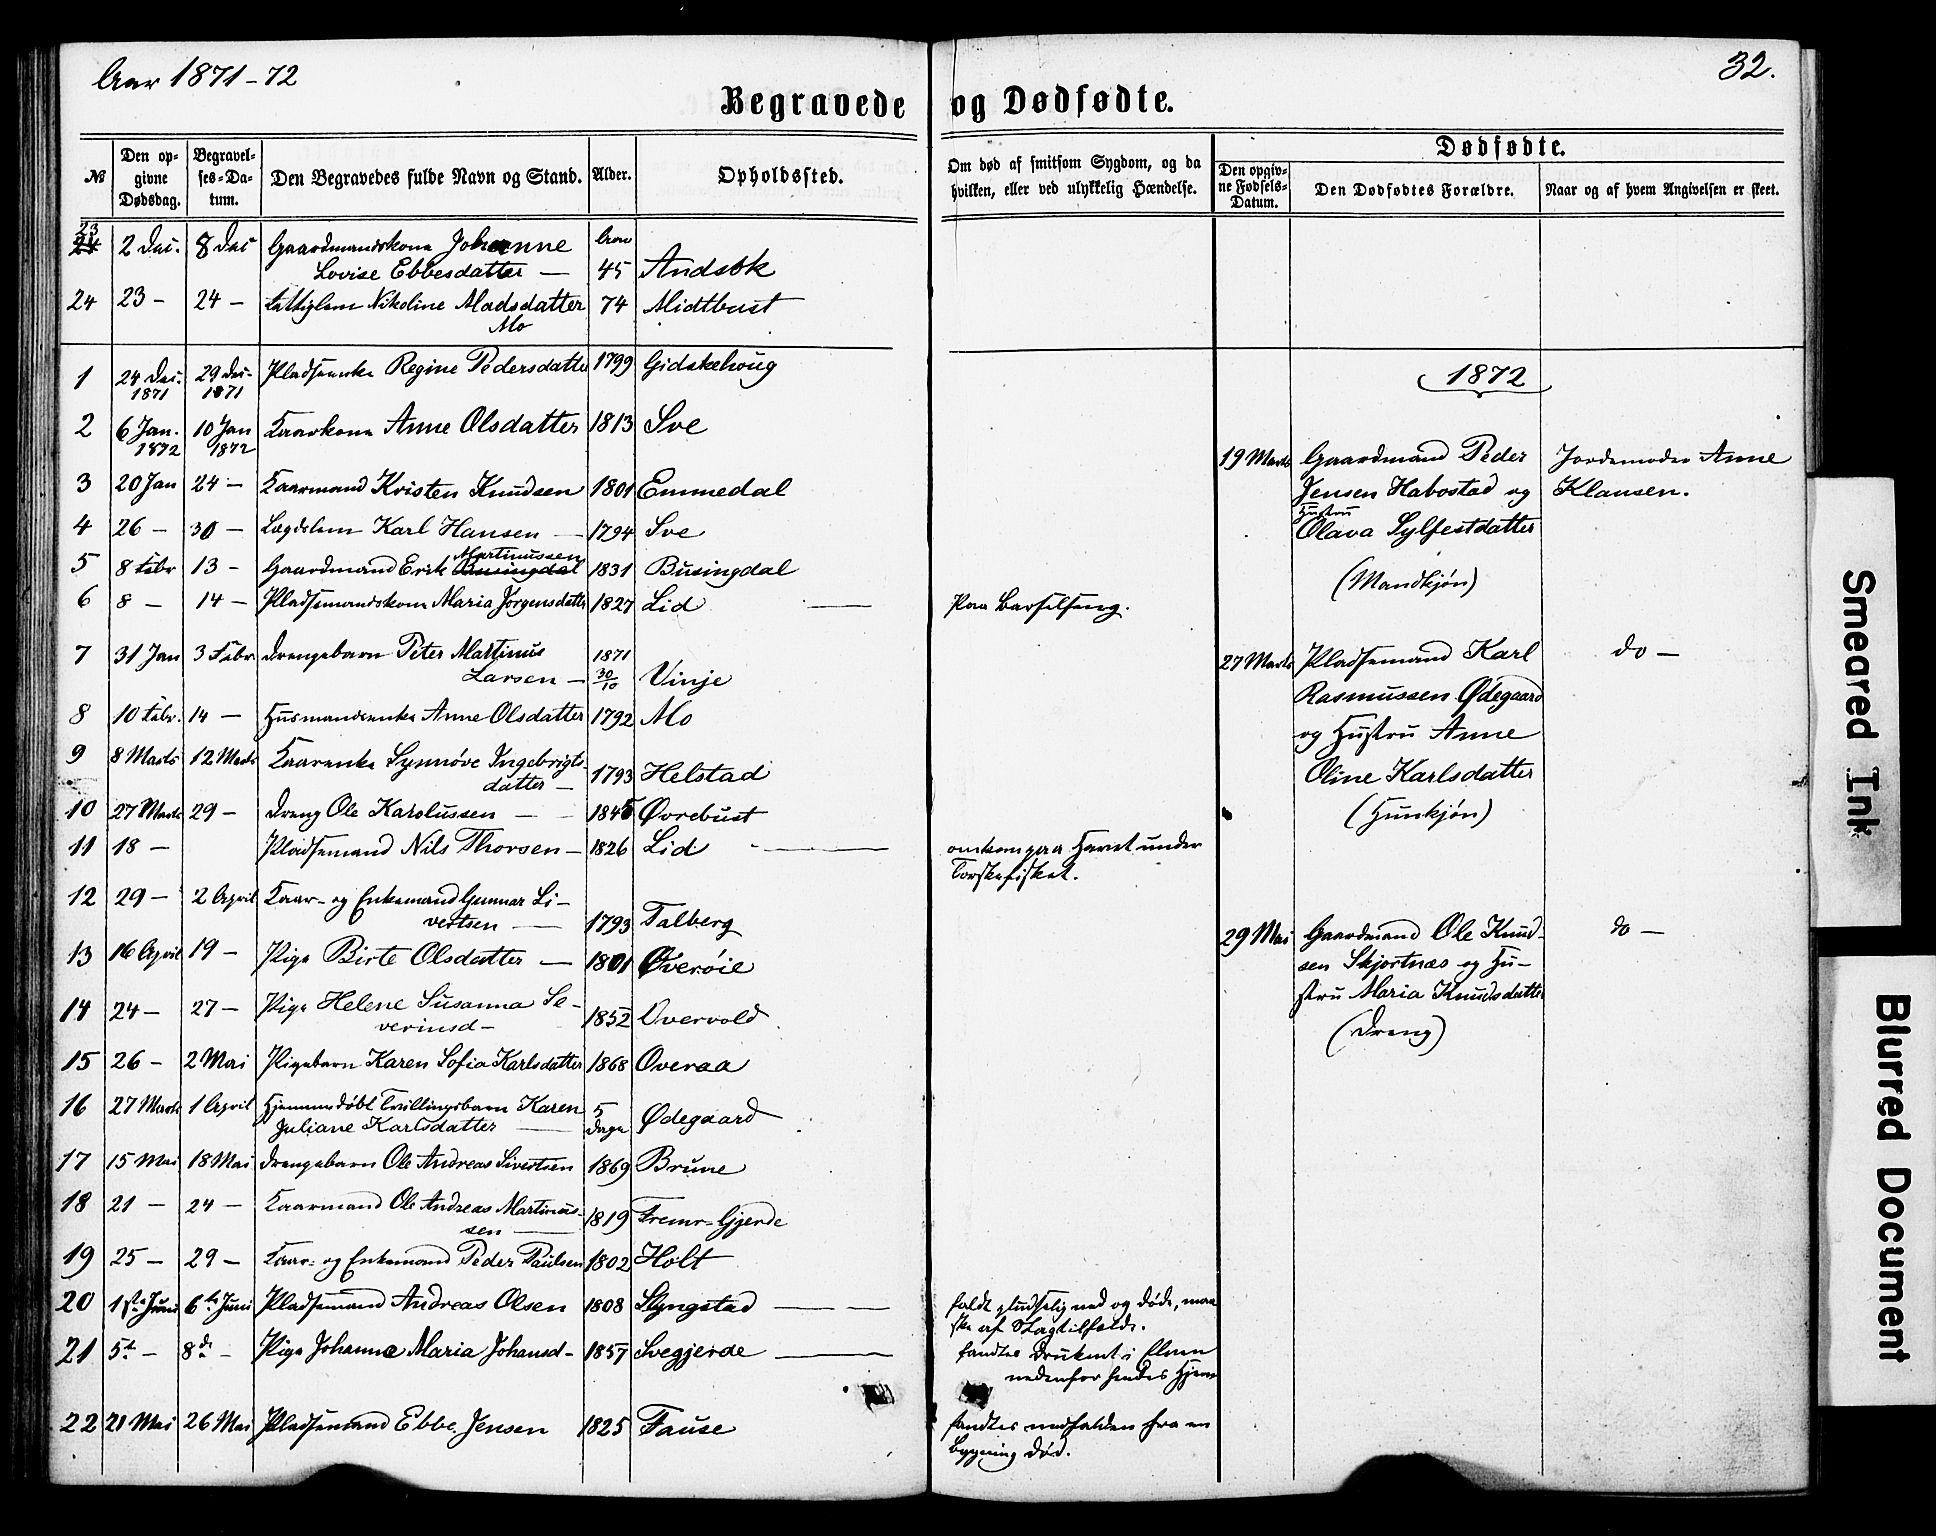 Aar 1871-72
32.
Begravede og Dødfødte.
№
Den opgivne Dødsdag.
Begravelses-Datum.
Den Begravedes fulde Navn og Stand.
Alder.
Opholdssted.
Om død af smitsom Sygdom, og da
hvilken, eller ved ulykkelig Hændelse.
Dødfødte.
Den opgivne Fødsels-Datum.
Den Dødfødtes Forældre.
Naar og af hvem Angivelsen er skeet.
23 2 Dec. 8 Dec Gaardmandskone Johanne Aar
Lovise Ebbesdatter — 45 Andsok
24 23 — 24 — Nikoline Madsdatter 74 Midtbust
Mo
1 24 Dec. 29 Dec. Pladsenke Regine Pedersdatter 1799 Gidskehoug
1871 1871
2 6 Jan. 10 Jan Kaarkone Anne Olsdatter 1813 Sve
1872 1872
3 20 Jan 24 — Kaarmand Kristen Knudsen 1801 Emmedal
4 26 — 30 — Lægdslem Karl Hansen — 1794 Sve
Martinussen
5 8 Febr 13 — Gaardmand Erik Busingdal 1831 Busingdal
6 8 — 14 — Pladsemandskone Maria Jørgensdatter 1827 Lid — Paa Barselseng.
7 31 Jan 3 Febr Drengebarn Peter Martinus 1871
Larsen — 30/10 Vinje
8 10 Febr. 14 — Husmandsenke Anne Olsdatter 1792 Mo
9 8 Marts 12 Marts Kaarenke Synnøve Ingebrigts-
datter — 1793 Helstad
10 27 Marts 29 — Dreng Ole Karolussen — 1845 Øvrebust
11 18 — Pladsemand Nils Thorsen — 1826 Lid — omkom paa Havet under
Torskefisket.
12 29 — 2 April Kaar- og Enkemand Gunnar Li-
vertsen — 1793 Talberg
13 16 April 19 — Pige Birte Olsdatter — 1801 Øverøie
14 24 — 27 — Pige Helene Susanna Se-
verinsd — 1852 Overvold
15 26 — 2 Mai Pigebarn Karen Sofia Karlsdatter 1868 Overaa
16 27 Marts 1 April Hjemmedøbt Tvillingbarn Karen 5
Juliane Karlsdatter — Dage Ødegaard
17 15 Mai 18 Mai Drengebarn Ole Andreas Sivertsen 1869 Brune
18 21 — 24 — Kaarmand Ole Andreas Martinus-
sen — 1819 Fremr-Gjerde
19 25 — 29 — Kaar- og Enkemand Peder Paulsen 1802 Holt
20 1ste Juni 6te Juni Pladsemand Andreas Olsen 1808 Slyngstad — faldt pludselig ned og døde, maa
ske af Slagtilfælde.
21 5te — 8de — Pige Johanne Maria Johansd — 1857 Svegjerde — fandtes druknet i Elven
nedenfor hendes Hjem
22 21 Mai 26 Mai Pladsemand Ebbe Jensen 1825 Fause fandtes nedfalden fra en
Bygning død.
1872
19 Marts Gaardmand Peder Jordemoder Anne
Jensen Habostad og Klausen.
Hustru
Olava Sylfestdatter
(Mandkjøn)
27 Marts Pladsemand Karl do —
Rasmussen Ødegaard
og Hustru Anne
Oline Karlsdatter
(Hunkjøn)
29 Mai Gaardmand Ole Knud- do —
sen Skjortnæs og Hu-
stru Maria Knudsdatter
(Dreng)
Smeared Ink
Blurred Document